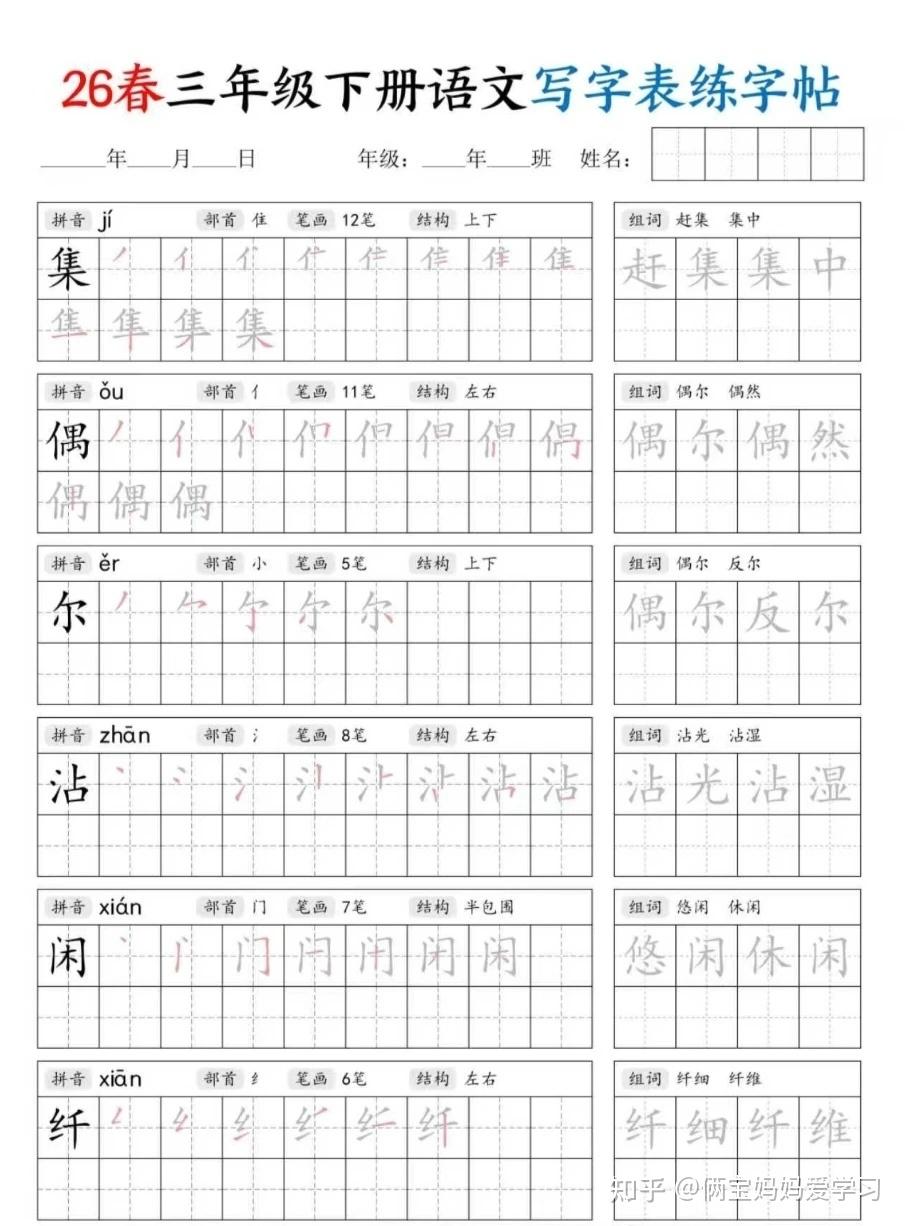 26春三年级下册语文写字表练字帖
____年____月____日 年级：____年____班 姓名：
拼音 jí 部首 隹 笔画 12笔 结构 上下 组词 赶集 集中
集 赶集集中
集
拼音 ǒu 部首 亻 笔画 11笔 结构 左右 组词 偶尔 偶然
偶 偶尔偶然
偶偶偶
拼音 ěr 部首 小 笔画 5笔 结构 上下 组词 偶尔 反尔
尔 尔 偶尔反尔
拼音 zhān 部首 氵 笔画 8笔 结构 左右 组词 沾光 沾湿
沾 沾 沾光沾湿
拼音 xián 部首 门 笔画 7笔 结构 半包围 组词 悠闲 休闲
闲 闲 悠闲休闲
拼音 xiān 部首 纟 笔画 6笔 结构 左右 组词 纤细 纤维
纤 纤 纤细纤维
知乎 @俩宝妈妈爱学习